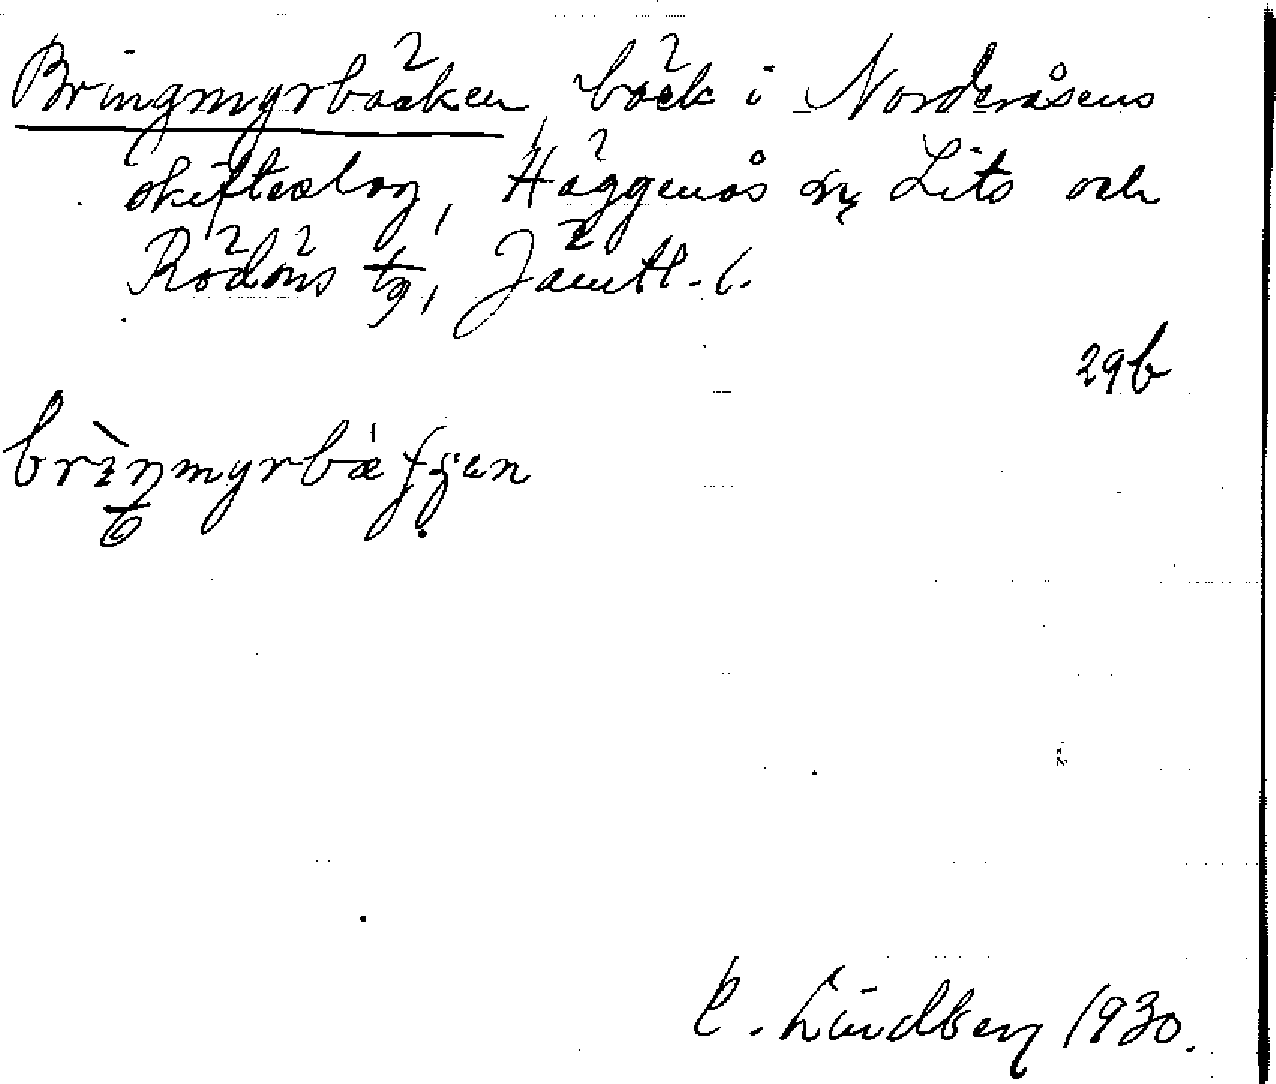 Bringmyrbäcken, bäck i Norderåsens
skifteslag, Häggenås sn, Lits och
Rödöns tg, Jämtl. l.
29b
E. Lundberg 1930.